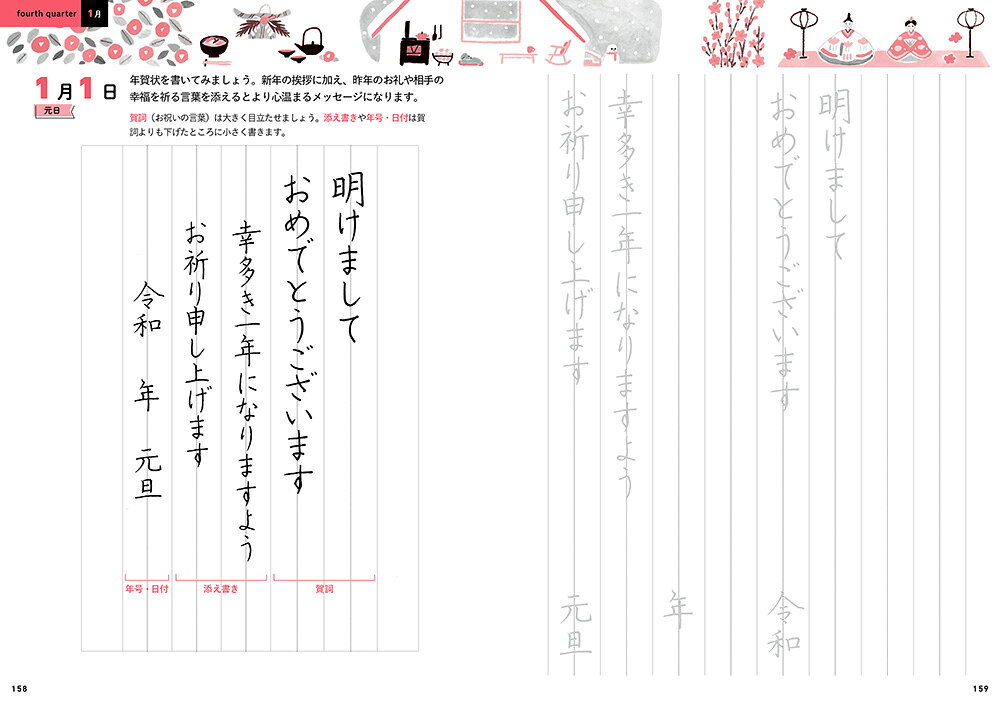 fourth quarter 1月
1月1日
元日
年賀状を書いてみましょう。新年の挨拶に加え、昨年のお礼や相手の
幸福を祈る言葉を添えるとより心温まるメッセージになります。
賀詞（お祝いの言葉）は大きく目立たせましょう。添え書きや年号・日付は賀
詞よりも下げたところに小さく書きます。
明けまして
おめでとうございます
幸多き一年になりますよう
お祈り申し上げます
令和 年 元旦
賀詞
添え書き
年号・日付
158
明けまして
おめでとうございます
令和
年
幸多き一年になりますよう
お祈り申し上げます
元旦
159